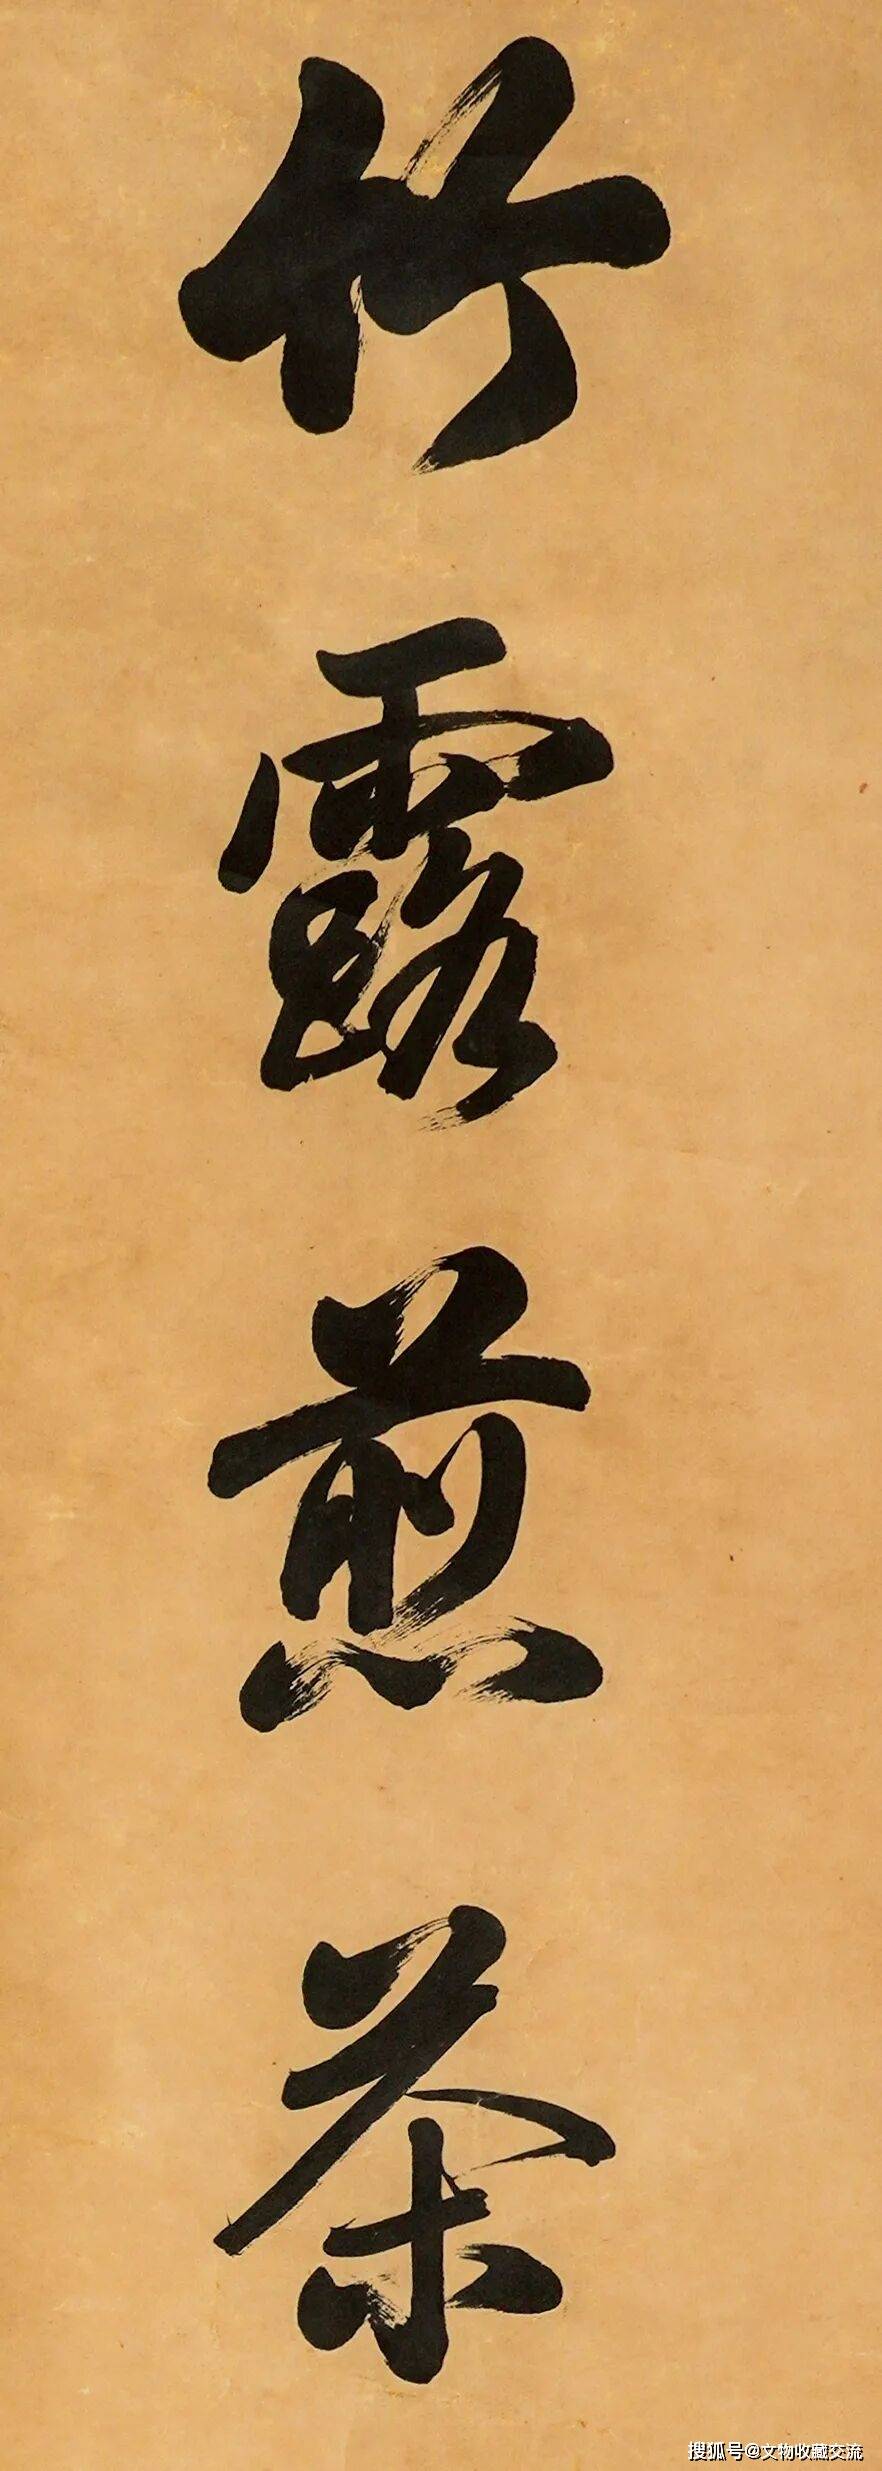 竹露煎茶
搜狐号@文物收藏交流